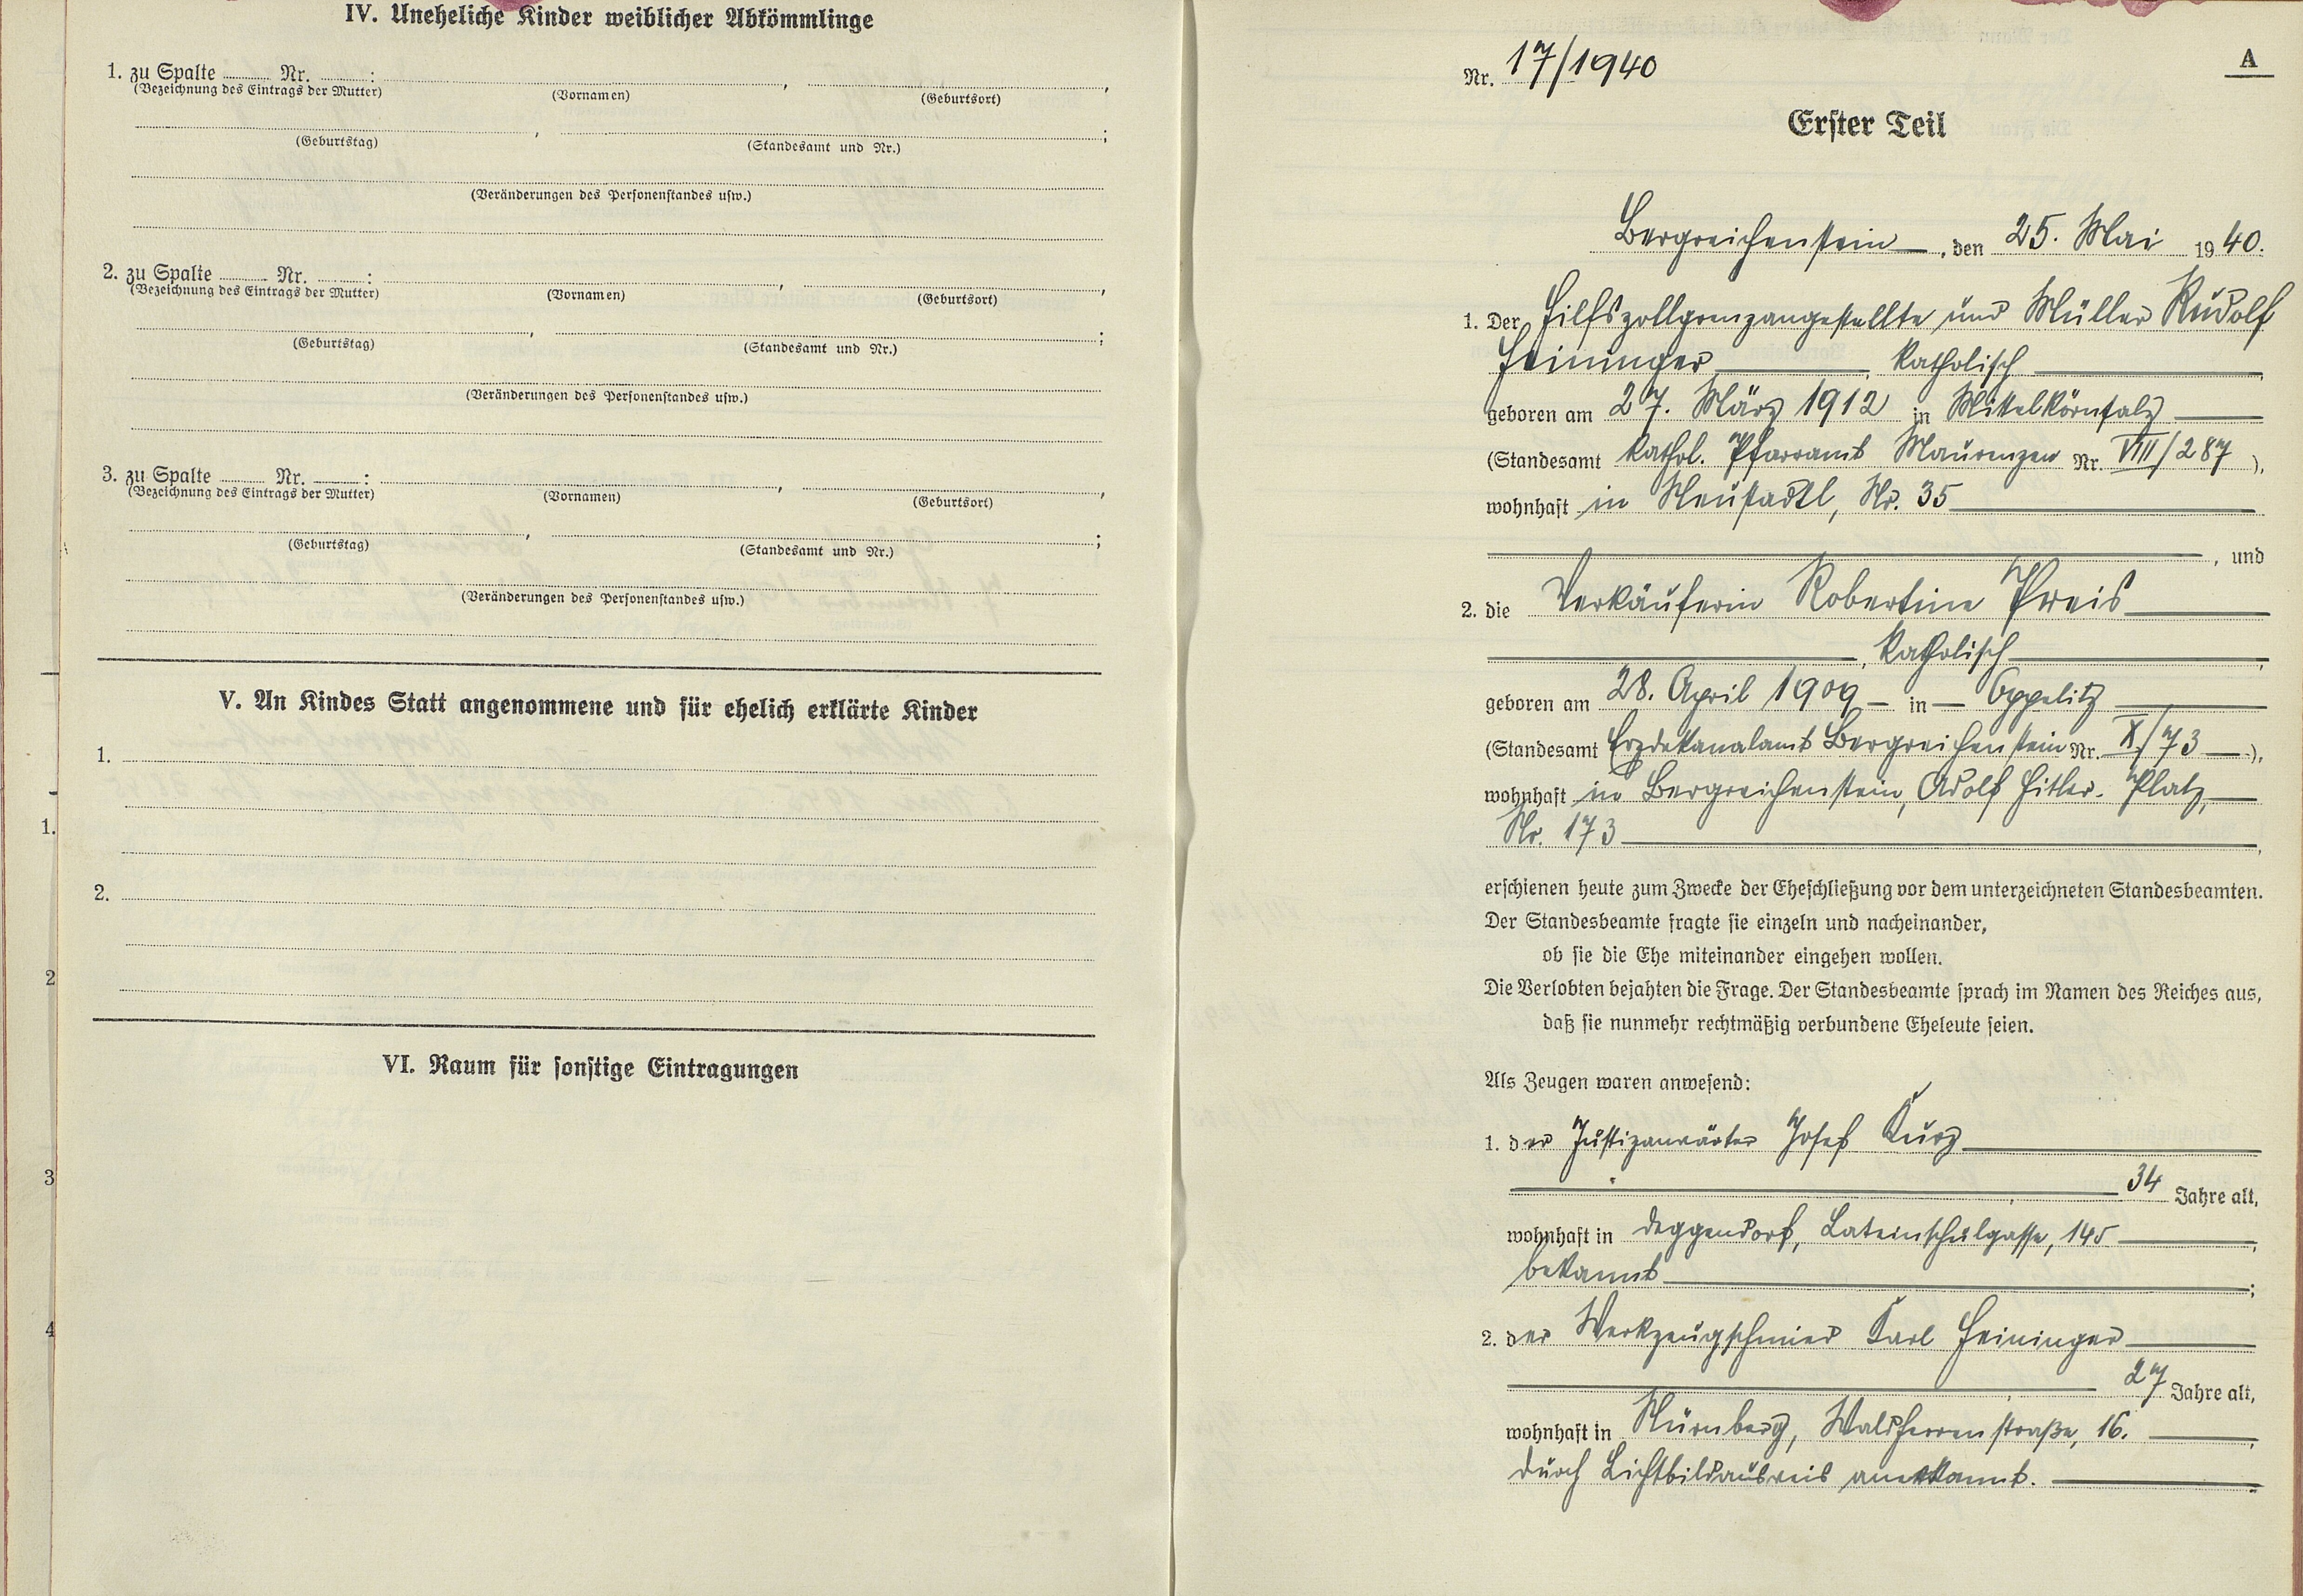 IV. Uneheliche Kinder weiblicher Abkömmlinge
1. zu Spalte ........ Nr. ........:
(Bezeichnung des Eintrags der Mutter) (Vornamen) , (Geburtsort) ,
(Geburtstag) , (Standesamt und Nr.) ;
(Veränderungen des Personenstandes usw.)
2. zu Spalte ........ Nr. ........:
(Bezeichnung des Eintrags der Mutter) (Vornamen) , (Geburtsort) ,
(Geburtstag) , (Standesamt und Nr.) ;
(Veränderungen des Personenstandes usw.)
3. zu Spalte ........ Nr. ........:
(Bezeichnung des Eintrags der Mutter) (Vornamen) , (Geburtsort) ,
(Geburtstag) , (Standesamt und Nr.) ;
(Veränderungen des Personenstandes usw.)
V. An Kindes Statt angenommene und für ehelich erklärte Kinder
1.
2.
VI. Raum für sonstige Eintragungen
1.
2
3
4
A
Nr. 17/1940
Erster Teil
Bergreichenstein, den 25. Mai 1940.
1. Der Hilfszollgrenzangestellte und Müller Rudolf
Heininger, katholisch,
geboren am 27. März 1912 in Mittelkörnsalz
(Standesamt kathol. Pfarramt Maurenzen Nr. VIII/287),
wohnhaft in Neustadtl, Nr. 35
, und
2. die Verkäuferin Robertine Preis
, katholisch,
geboren am 28. April 1909 in Oppelitz
(Standesamt Erzdekanalamt Bergreichenstein Nr. X/73),
wohnhaft in Bergreichenstein, Adolf Hitler-Platz,
Nr. 173,
erschienen heute zum Zwecke der Eheschließung vor dem unterzeichneten Standesbeamten.
Der Standesbeamte fragte sie einzeln und nacheinander,
ob sie die Ehe miteinander eingehen wollen.
Die Verlobten bejahten die Frage. Der Standesbeamte sprach im Namen des Reiches aus,
daß sie nunmehr rechtmäßig verbundene Eheleute seien.
Als Zeugen waren anwesend:
1. der Justizanwärter Josef Kurz
, 34 Jahre alt,
wohnhaft in Deggendorf, Lateinschulgasse, 145,
bekannt;
2. der Werkzeugschmied Karl Heininger
, 27 Jahre alt,
wohnhaft in Nürnberg, Waldherrenstraße, 16.,
durch Lichtbildausweis anerkannt.